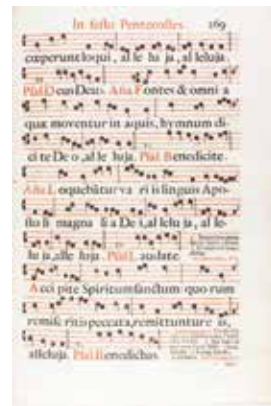 In festo Pentecostes. 169
cœperunt loqui, al le lu ja, al leluja.
Psal. Deus Deus. Aña. Fontes & omni a
quæ moventur in aquis, hymnum di-
ci te De o, al le luja. Psal. Benedicite.
Aña. Loquebātur va ri is linguis Apo-
sto li magna li a De i, al lelu ja, al le-
lu ja, alle luja. Psal. Laudate.
Accipite Spiritum sanctum quo rum
remise ritis peccata, remittuntur e is,
alleluja. Psal. Benedictus.